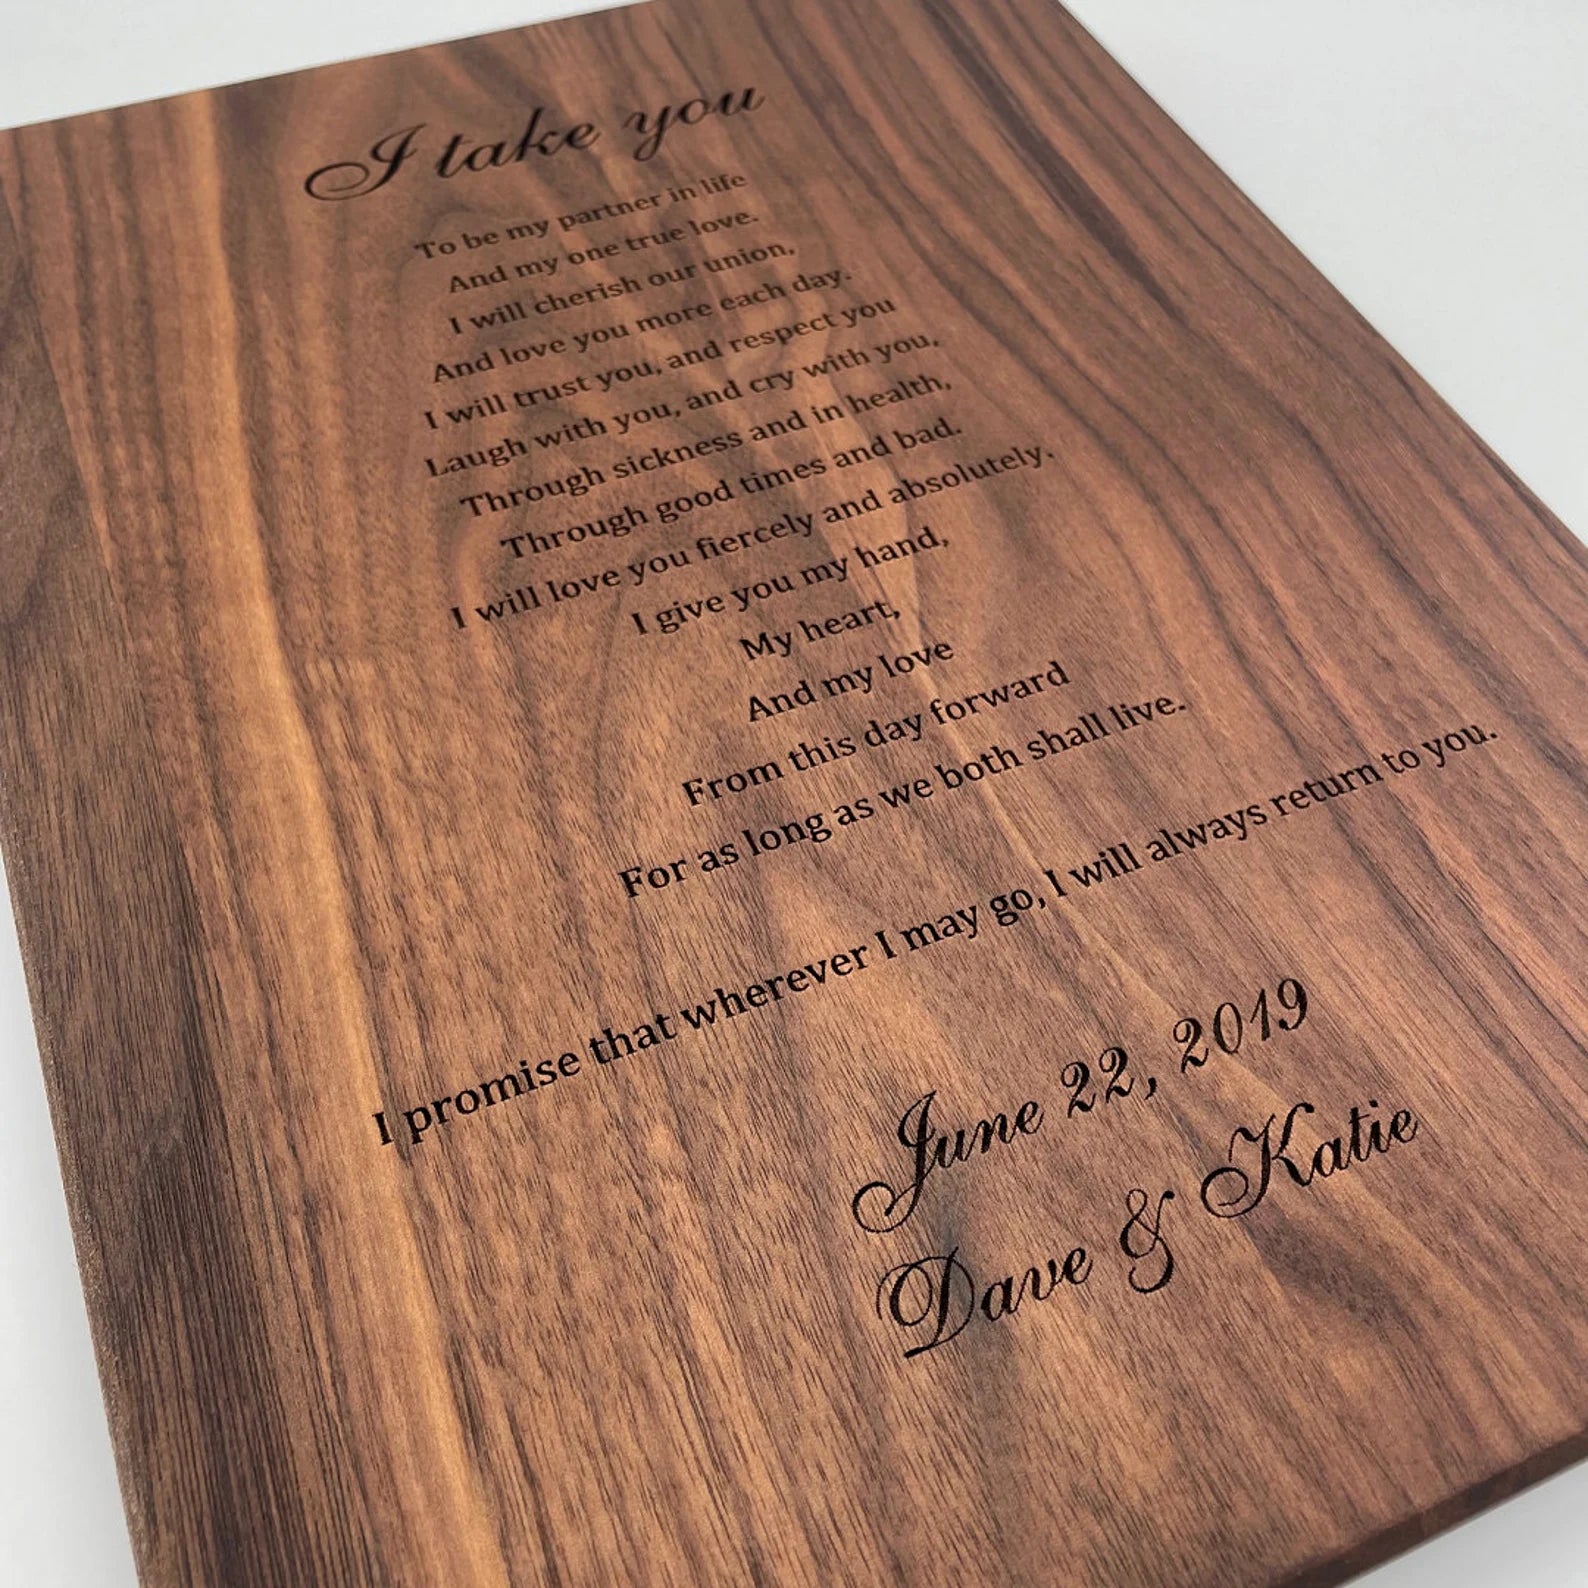 I take you
To be my partner in life
And my one true love.
I will cherish our union,
And love you more each day.
I will trust you, and respect you
Laugh with you, and cry with you,
Through sickness and in health,
Through good times and bad.
I will love you fiercely and absolutely.
I give you my hand,
My heart,
And my love
From this day forward
For as long as we both shall live.
I promise that wherever I may go, I will always return to you.
June 22, 2019
Dave & Katie